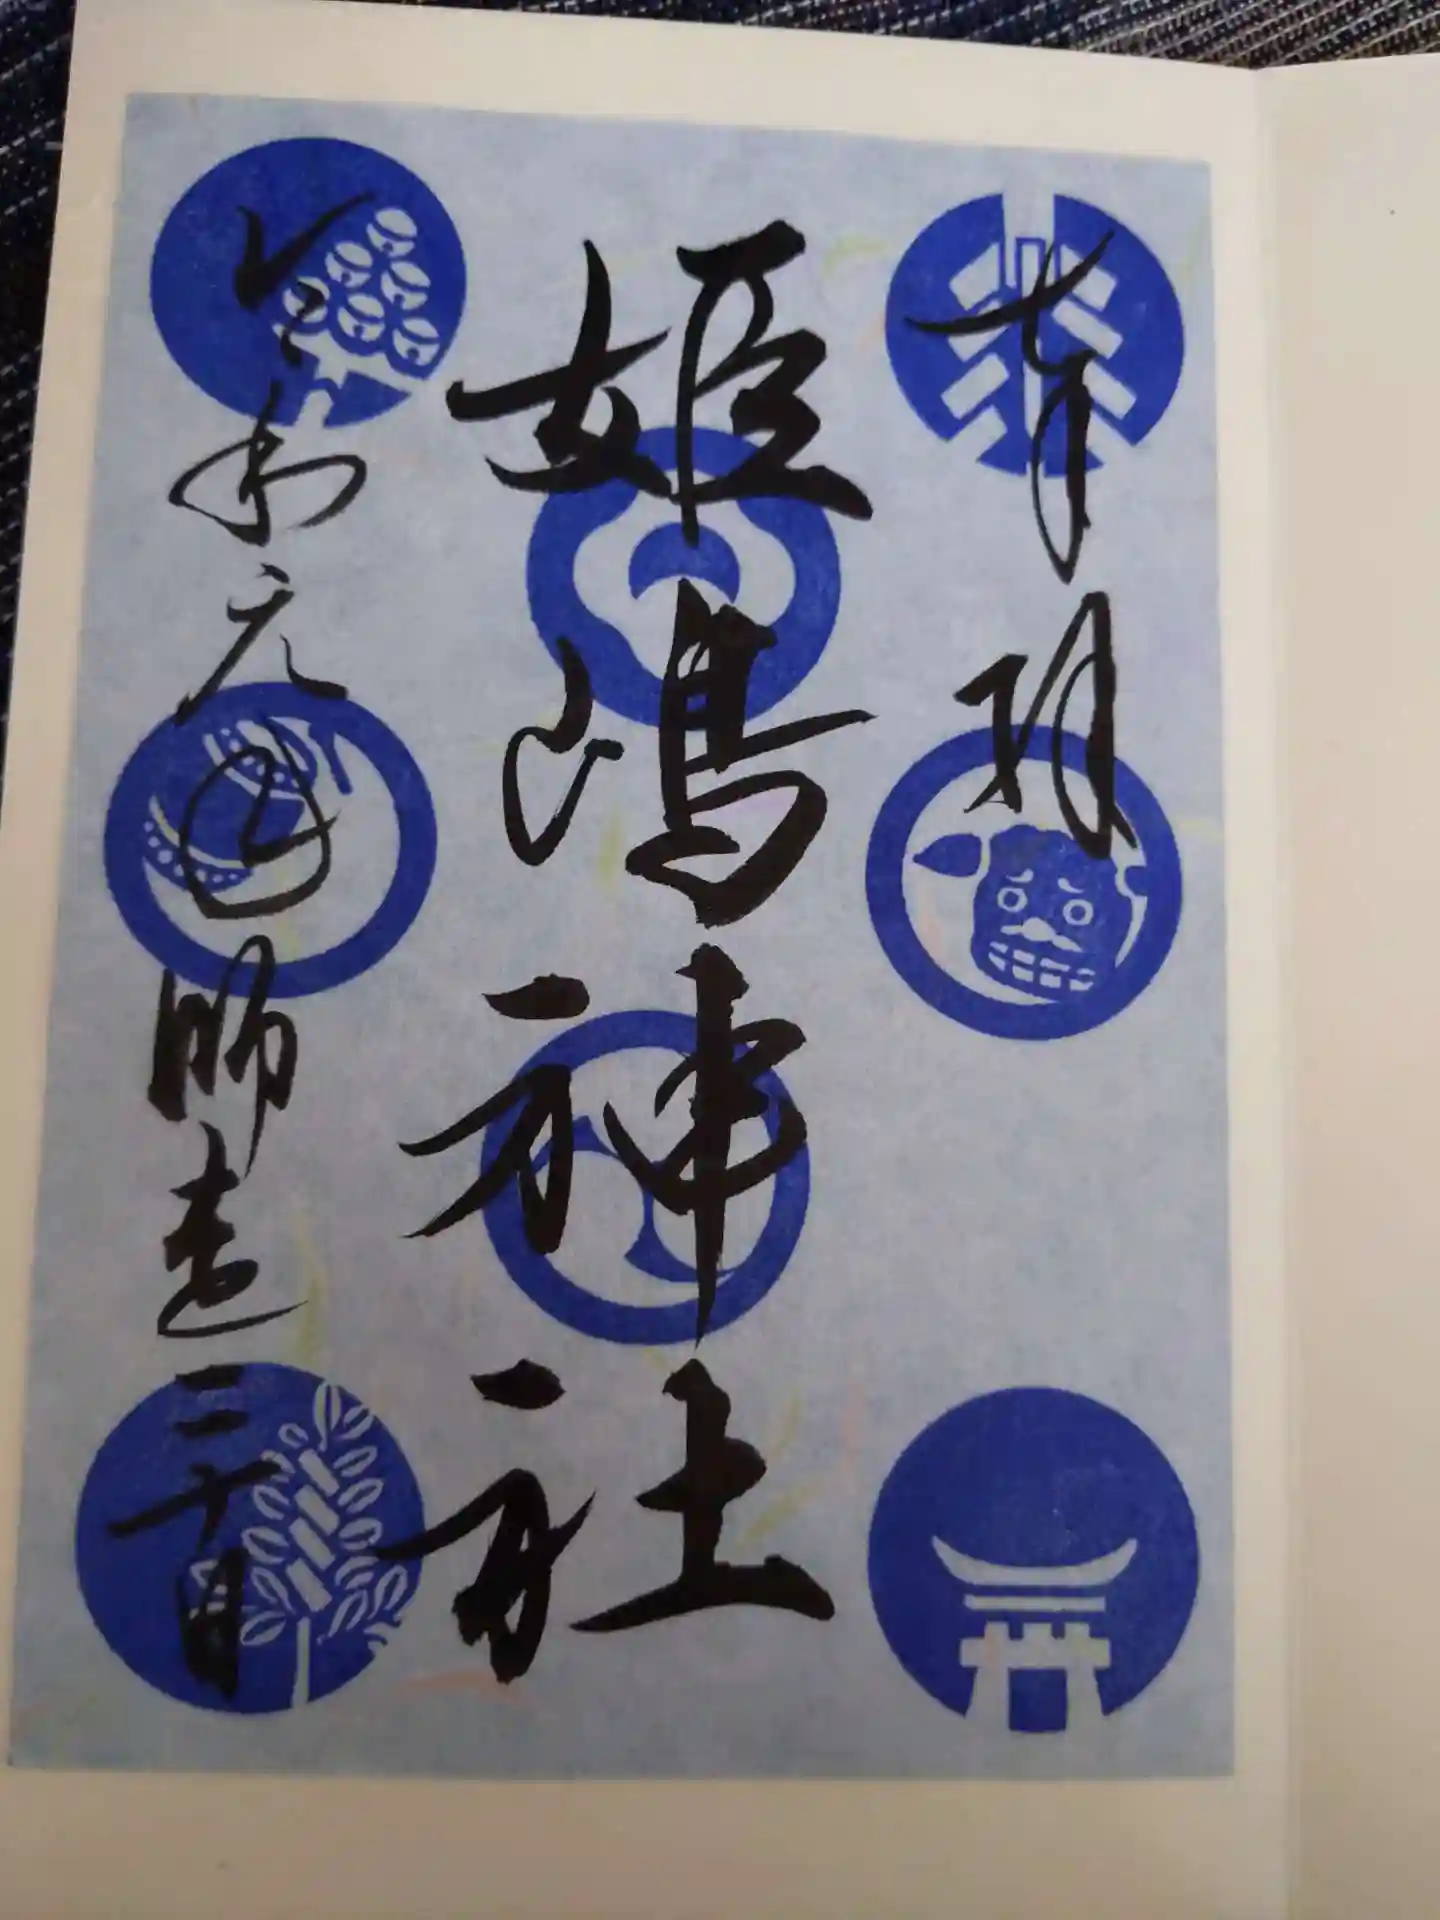 奉拝
姫嶋神社
令和元年師走二十日